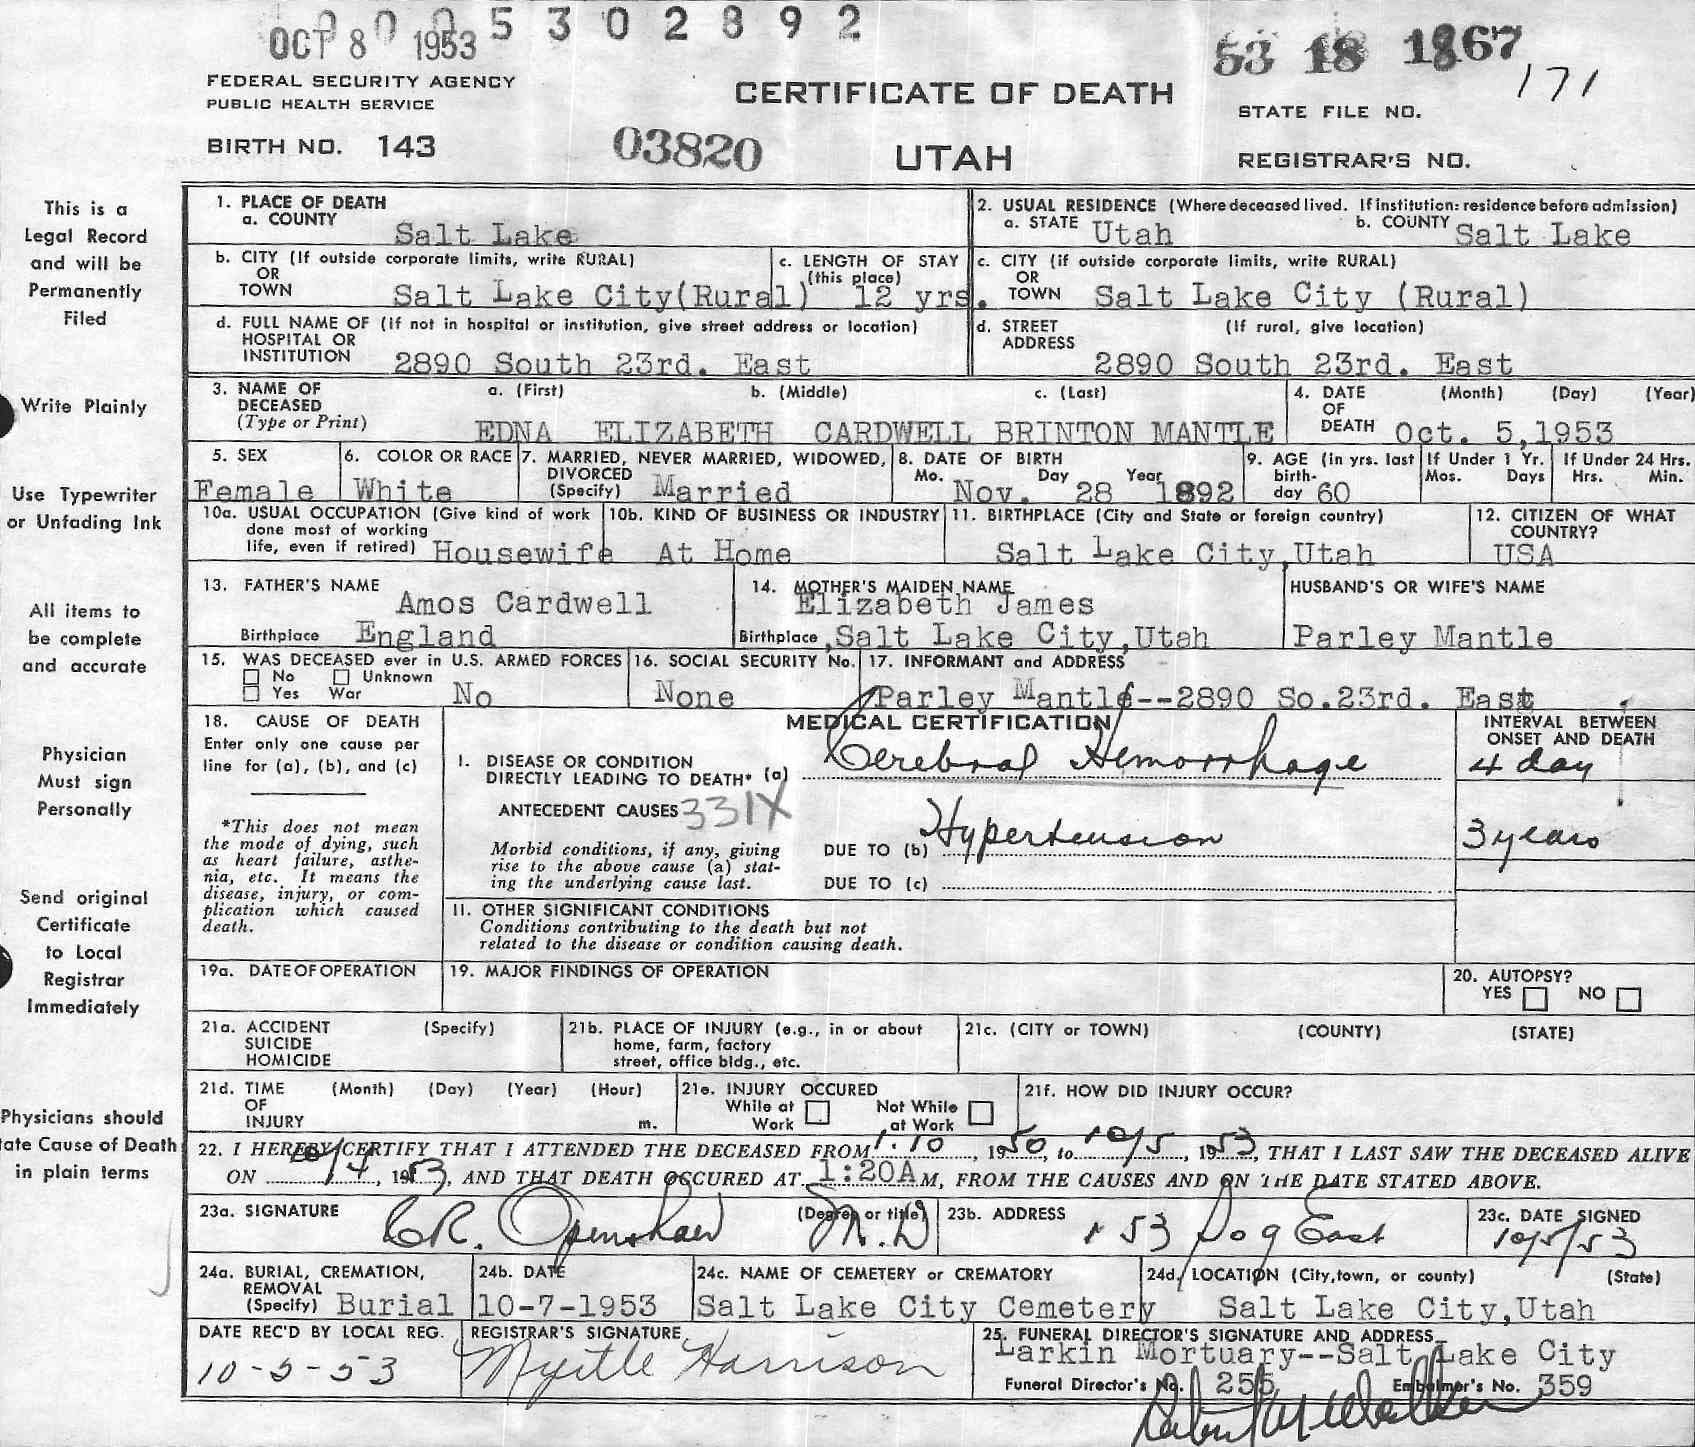 OCT 8 1953
0005302892
53 18 1867
171
FEDERAL SECURITY AGENCY
PUBLIC HEALTH SERVICE
CERTIFICATE OF DEATH
STATE FILE NO.
BIRTH NO. 143
03820
UTAH
REGISTRAR'S NO.
This is a
Legal Record
and will be
Permanently
Filed
Write Plainly
Use Typewriter
or Unfading Ink
All items to
be complete
and accurate
Physician
Must sign
Personally
Send original
Certificate
to Local
Registrar
Immediately
Physicians should
ate Cause of Death
in plain terms
1. PLACE OF DEATH
a. COUNTY Salt Lake
2. USUAL RESIDENCE (Where deceased lived. If institution: residence before admission)
a. STATE Utah b. COUNTY Salt Lake
b. CITY (If outside corporate limits, write RURAL)
OR
TOWN Salt Lake City(Rural)
c. LENGTH OF STAY
(this place)
12 yrs.
c. CITY (if outside corporate limits, write RURAL)
OR
TOWN Salt Lake City (Rural)
d. FULL NAME OF (If not in hospital or institution, give street address or location)
HOSPITAL OR
INSTITUTION 2890 South 23rd. East
d. STREET (If rural, give location)
ADDRESS
2890 South 23rd. East
3. NAME OF a. (First) b. (Middle) c. (Last)
DECEASED
(Type or Print) EDNA ELIZABETH CARDWELL BRINTON MANTLE
4. DATE (Month) (Day) (Year)
OF
DEATH Oct. 5,1953
5. SEX
Female
6. COLOR OR RACE
White
7. MARRIED, NEVER MARRIED, WIDOWED,
DIVORCED
(Specify) Married
8. DATE OF BIRTH
Mo. Day Year
Nov. 28 1892
9. AGE (in yrs. last
birth-
day 60
If Under 1 Yr.
Mos. Days
If Under 24 Hrs.
Hrs. Min.
10a. USUAL OCCUPATION (Give kind of work
done most of working
life, even if retired) Housewife
10b. KIND OF BUSINESS OR INDUSTRY
At Home
11. BIRTHPLACE (City and State or foreign country)
Salt Lake City,Utah
12. CITIZEN OF WHAT
COUNTRY?
USA
13. FATHER'S NAME
Amos Cardwell
Birthplace England
14. MOTHER'S MAIDEN NAME
Elizabeth James
Birthplace ,Salt Lake City,Utah
HUSBAND'S OR WIFE'S NAME
Parley Mantle
15. WAS DECEASED ever in U.S. ARMED FORCES
No Unknown
Yes War No
16. SOCIAL SECURITY No.
None
17. INFORMANT and ADDRESS
Parley Mantle--2890 So.23rd. East
18. CAUSE OF DEATH
Enter only one cause per
line for (a), (b), and (c)
*This does not mean
the mode of dying, such
as heart failure, asthe-
nia, etc. It means the
disease, injury, or com-
plication which caused
death.
MEDICAL CERTIFICATION
INTERVAL BETWEEN
ONSET AND DEATH
I. DISEASE OR CONDITION
DIRECTLY LEADING TO DEATH* (a) Cerebral Hemorrhage 4 day
ANTECEDENT CAUSES 331X
Morbid conditions, if any, giving
rise to the above cause (a) stat-
ing the underlying cause last.
DUE TO (b) Hypertension 3 years
DUE TO (c)
11. OTHER SIGNIFICANT CONDITIONS
Conditions contributing to the death but not
related to the disease or condition causing death.
19a. DATE OF OPERATION
19. MAJOR FINDINGS OF OPERATION
20. AUTOPSY?
YES NO
21a. ACCIDENT (Specify)
SUICIDE
HOMICIDE
21b. PLACE OF INJURY (e.g., in or about
home, farm, factory
street, office bldg., etc.
21c. (CITY or TOWN) (COUNTY) (STATE)
21d. TIME (Month) (Day) (Year) (Hour)
OF
INJURY m.
21e. INJURY OCCURED
While at Not While
Work at Work
21f. HOW DID INJURY OCCUR?
22. I HEREBY CERTIFY THAT I ATTENDED THE DECEASED FROM 1.10, 1950, to 10/5, 1953, THAT I LAST SAW THE DECEASED ALIVE
ON 10/4, 1953, AND THAT DEATH OCCURED AT 1:20A M, FROM THE CAUSES AND ON THE DATE STATED ABOVE.
23a. SIGNATURE (Degree or title)
CR. Openshaw M.D
23b. ADDRESS
53 East
23c. DATE SIGNED
10/5/53
24a. BURIAL, CREMATION,
REMOVAL
(Specify) Burial
24b. DATE
10-7-1953
24c. NAME OF CEMETERY or CREMATORY
Salt Lake City Cemetery
24d. LOCATION (City,town, or county) (State)
Salt Lake City,Utah
DATE REC'D BY LOCAL REG.
10-5-53
REGISTRAR'S SIGNATURE
Myrtle Harrison
25. FUNERAL DIRECTOR'S SIGNATURE AND ADDRESS
Larkin Mortuary--Salt Lake City
Funeral Director's No. 255 Embalmer's No. 359